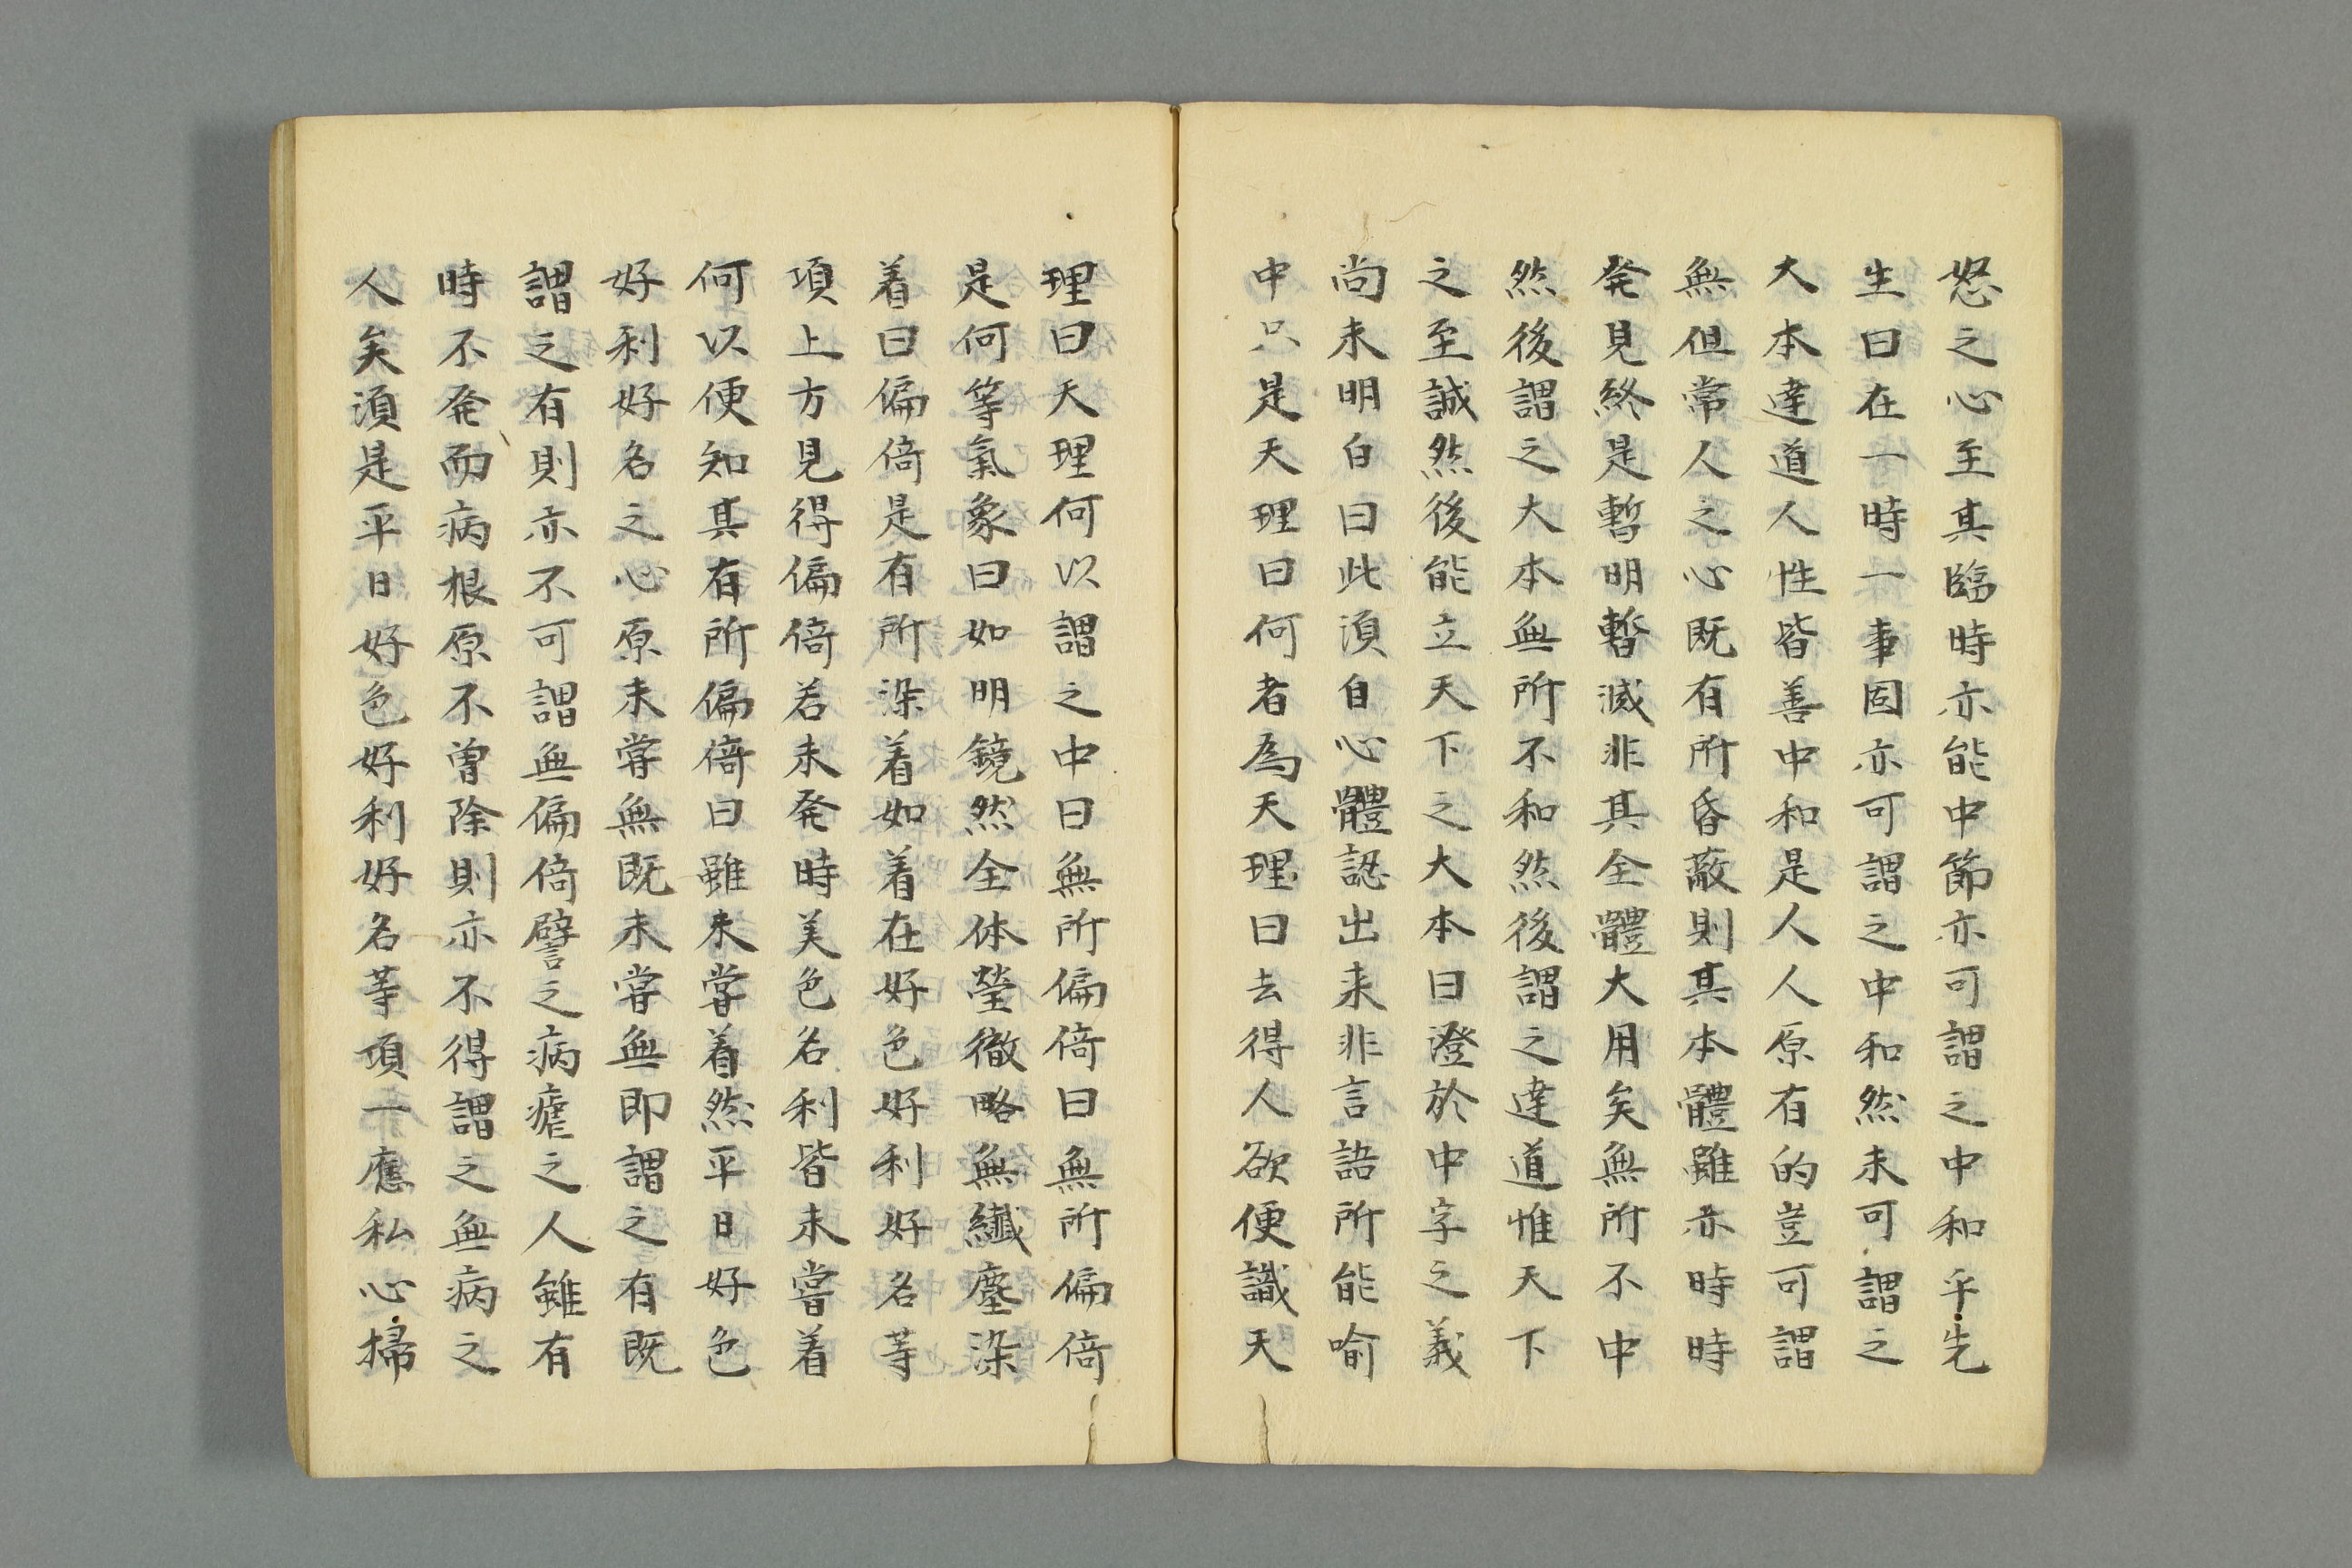 怒之心至其臨時亦能中節亦可謂之中和乎先
生曰在一時一事固亦可謂之中和然未可謂之
大本達道人性皆善中和是人人原有的豈可謂
無但常人之心既有所昏蔽則其本體雖亦時時
発見終是暫明暫滅非其全體大用矣無所不中
然後謂之大本無所不和然後謂之達道惟天下
之至誠然後能立天下之大本曰澄於中字之義
尚未明白曰此湏自心體認出来非言語所能喻
中只是天理曰何者為天理曰去得人欲便識天
理曰天理何以謂之中曰無所偏倚曰無所偏倚
是何等氣象曰如明鏡然全体瑩徹略無纖塵染
着曰偏倚是有所染着如着在好色好利好名等
項上方見得偏倚若未発時美色名利皆未嘗着
何以便知其有所偏倚曰雖未嘗着然平日好色
好利好名之心原未嘗無既未嘗無即謂之有既
謂之有則亦不可謂無偏倚譬之病瘧之人雖有
時不発而病根原不曽除則亦不得謂之無病之
人矣湏是平日好色好利好名等項一應私心掃